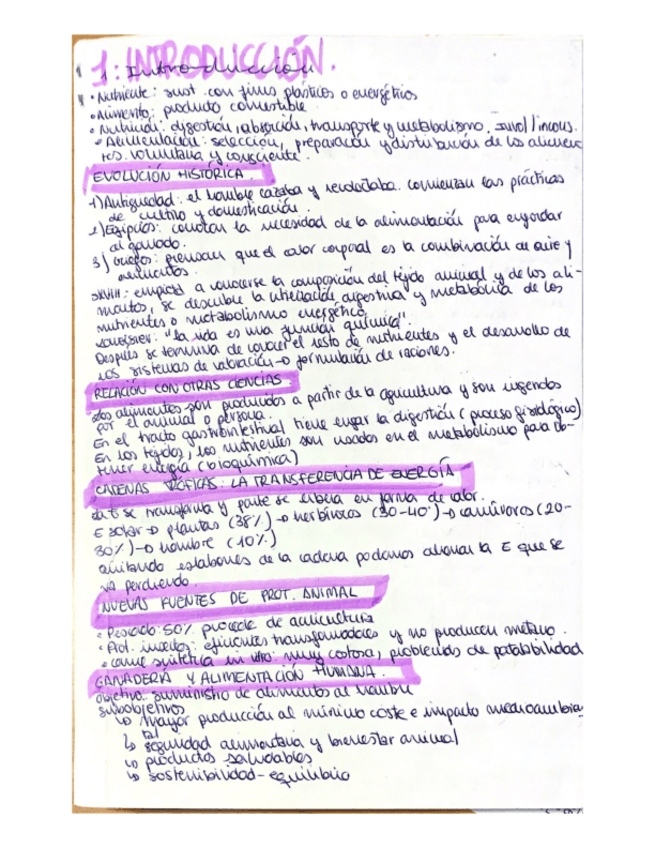 1: INTRODUCCIÓN.
1 Introducción
• Nutriente: sust. con fines plásticos o energéticos
• Alimento: producto comestible
• Nutrición: digestión, absorción, transporte y metabolismo. invol/incons.
• Alimentación: selección, preparación y distribución de los alimen
tos. voluntaria y consciente.
EVOLUCIÓN HISTÓRICA.
1) Antiguedad: el hombre cazaba y recolectaba. comienzan las prácticas
de cultivo y domesticación.
2) Egipcios: conocían la necesidad de la alimentación para engordar
al ganado.
3) Griegos: piensan que el calor corporal es la combinación de aire y
alimentos.
SXVIII: empieza a conocerse la composición del tejido animal y de los ali-
mentos, se describe la utilización digestiva y metabólica de los
nutrientes o metabolismo energético.
Lavoisier: "la vida es una función química".
Después se termina de conocer el resto de nutrientes y el desarrollo de
los sistemas de valoración → formulación de raciones.
RELACIÓN CON OTRAS CIENCIAS.
Los alimentos son producidos a partir de la agricultura y son ingeridos
por el animal o persona.
En el tracto gastrointestinal tiene lugar la digestión (proceso fisiológico)
En los tejidos, los nutrientes son usados en el metabolismo para ob-
tener energía (bioquímica)
CADENAS TRÓFICAS: LA TRANSFERENCIA DE ENERGÍA
La E se transforma y parte se libera en forma de calor.
E solar → plantas (38%) → herbívoros (30-40%) → carnívoros (20-
30%) → hombre (10%)
quitando eslabones de la cadena podemos ahorrar la E que se
va perdiendo.
NUEVAS FUENTES DE PROT. ANIMAL
• Pescado: 50% procede de acuicultura
• Prot. insectos: eficientes transformadores y no producen metano.
• carne sintética in vitro: muy costosa, problemas de palatabilidad
GANADERÍA Y ALIMENTACIÓN HUMANA.
objetivo: suministro de alimentos al hombre
subobjetivos
↳ Mayor producción al mínimo coste e impacto medioambien
tal
↳ seguridad alimentaria y bienestar animal
↳ productos saludables
↳ sostenibilidad - equilibrio